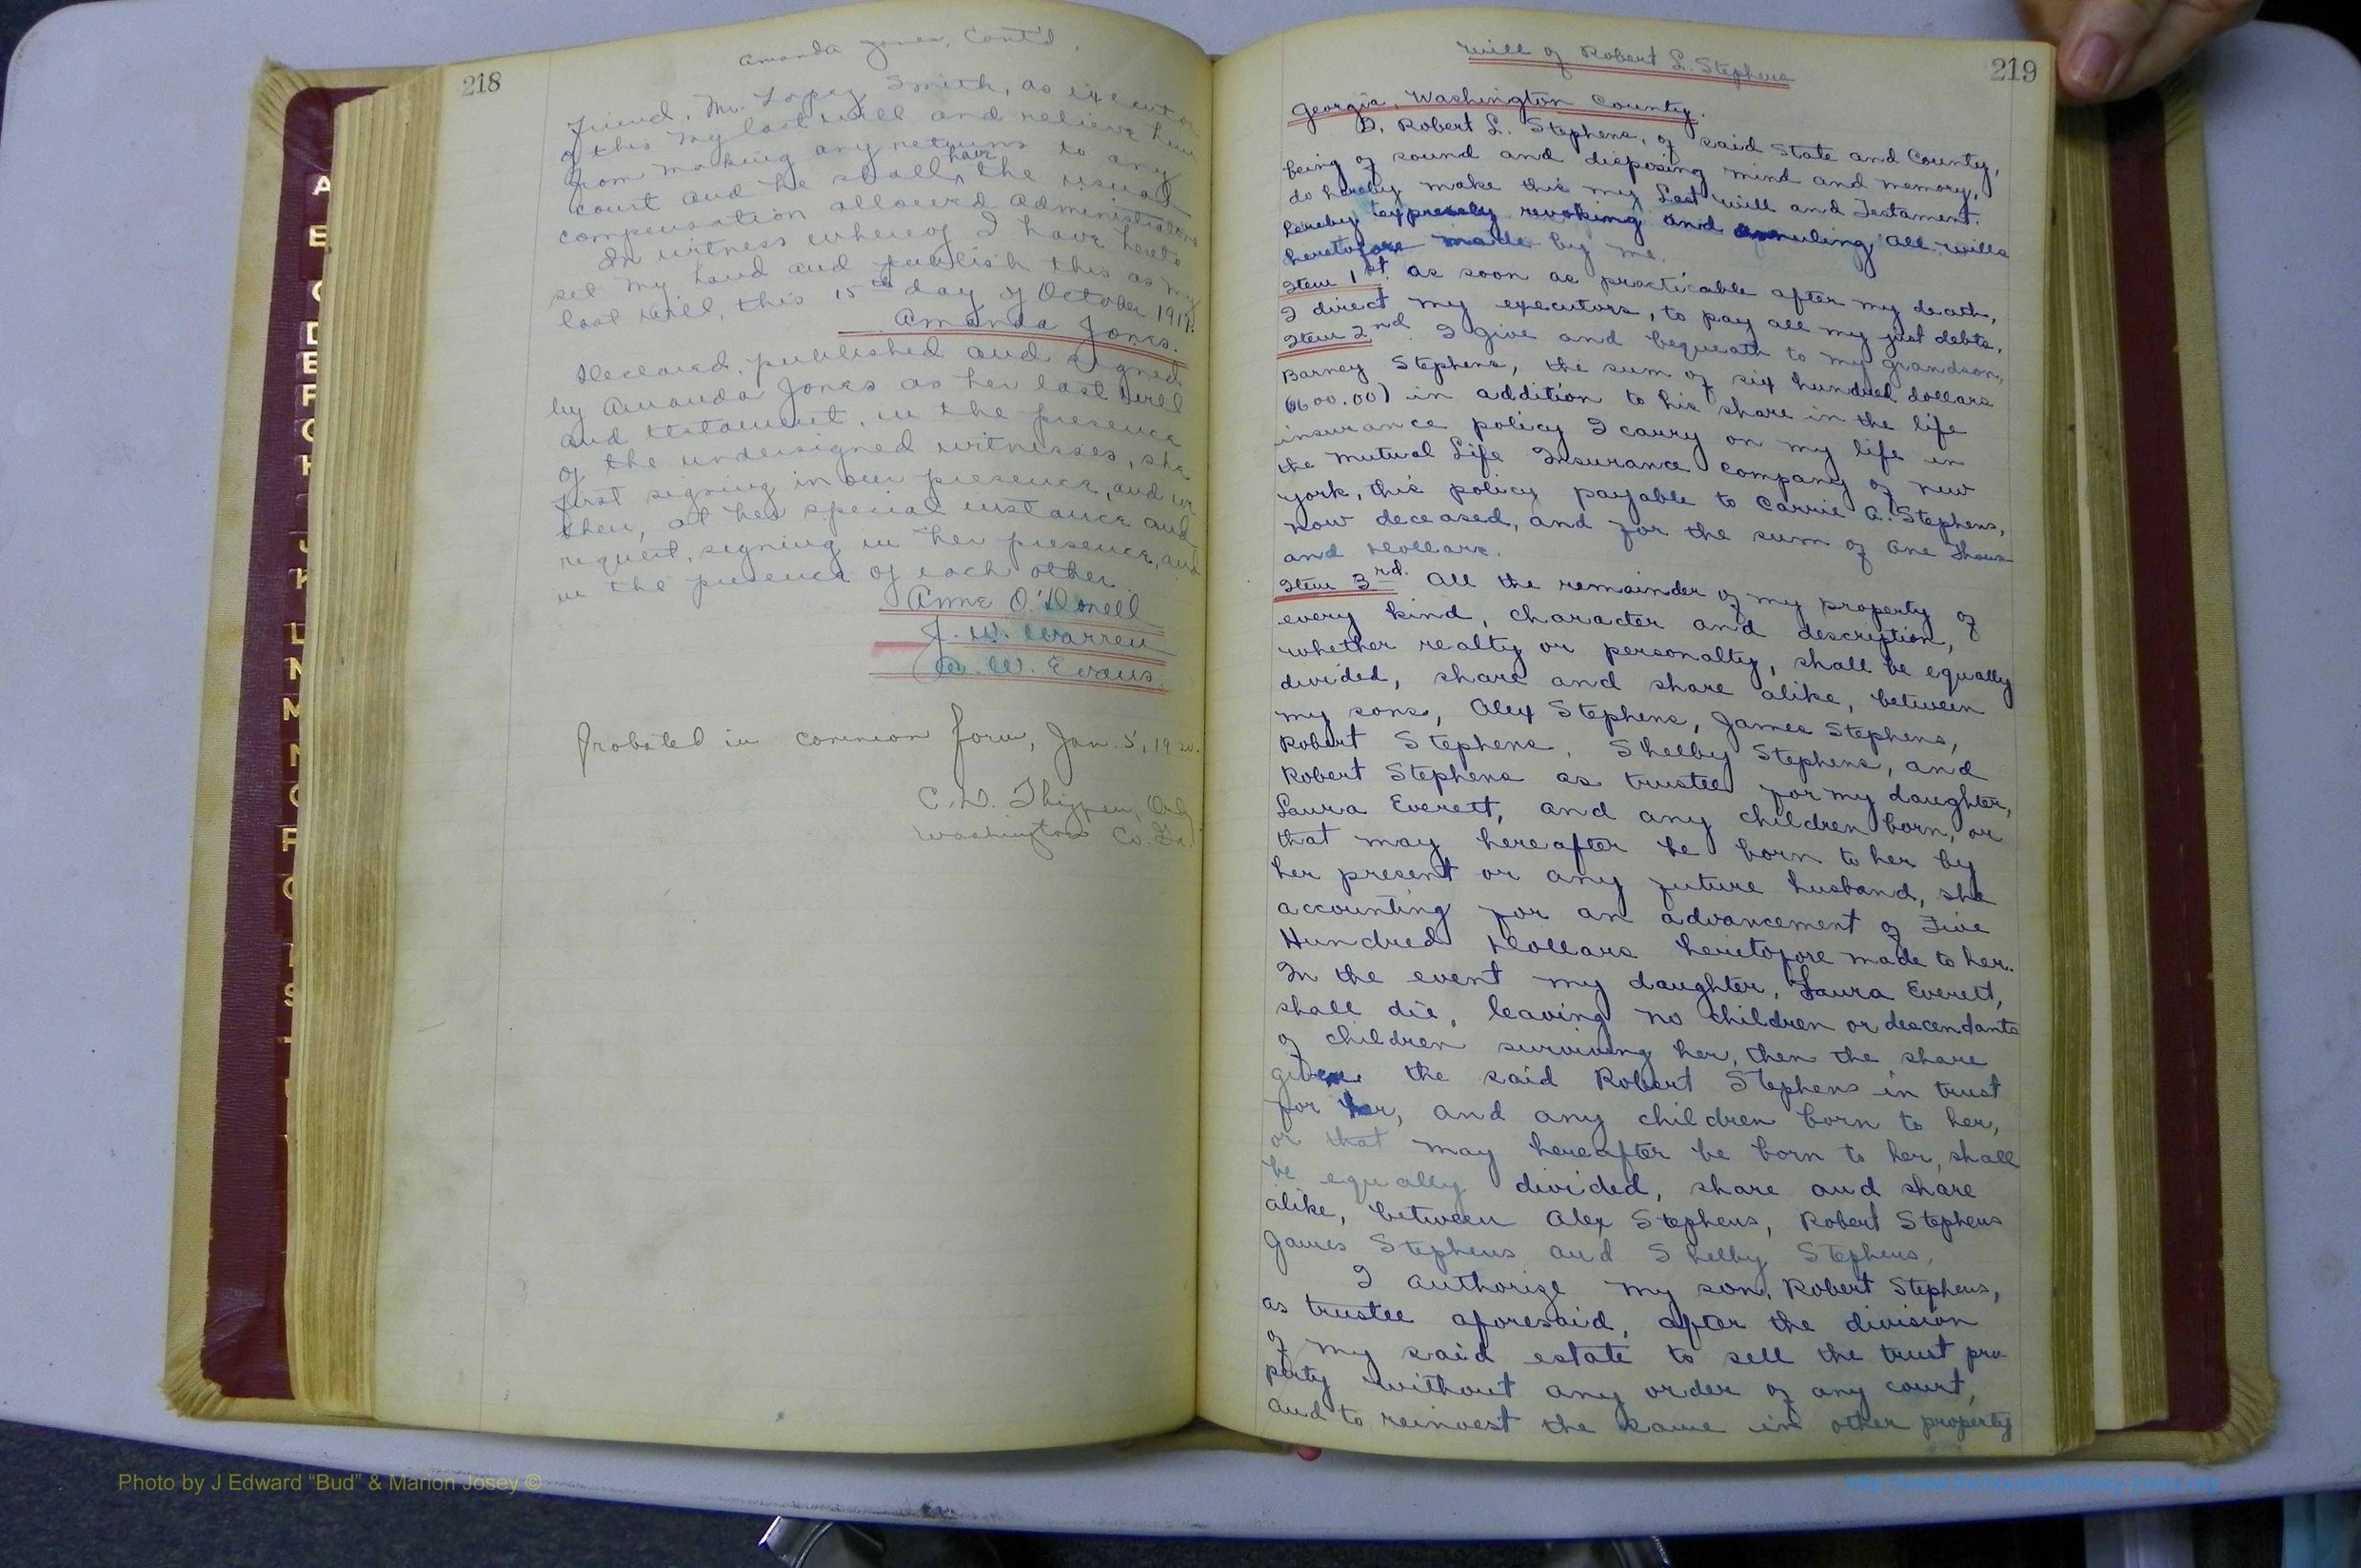 218
Amanda Jones, Cont'd.
friend, Mr. Smith, as executor
of this my last will and relieve him
from making any returns to any
court and he shall have the usual
compensation allowed administrators
In witness whereof I have hereto
set my hand and publish this as my
last will, this 15th day of October 1919.
Amanda Jones.
Declared, published and signed
by Amanda Jones as her last will
and testament, in the presence
of the undersigned witnesses, she
first signing in our presence, and we
then, at her special instance and
request, signing in her presence, and
in the presence of each other.
Anne O'Donell
J. W. Warren
W. Evans.
Probated in common form, Jan. 5, 1920.
C. D. Thigpen, Ord
Washington Co. Ga.
219
Will of Robert L. Stephens
Georgia, Washington County.
I, Robert L. Stephens, of said State and County,
being of sound and disposing mind and memory,
do hereby make this my Last will and Testament.
hereby expressly revoking and annuling all wills
heretofore made by me.
Item 1st. as soon as practicable after my death,
I direct my executors, to pay all my just debts.
Item 2nd. I give and bequeath to my grandson,
Barney Stephens, the sum of six hundred dollars
($600.00) in addition to his share in the life
insurance policy I carry on my life in
the Mutual Life Insurance Company of New
York, this policy payable to Carrie A. Stephens,
now deceased, and for the sum of One Thous-
and Dollars.
Item 3rd. All the remainder of my property of
every kind, character and description,
whether realty or personalty, shall be equally
divided, share and share alike, between
my sons, Alex Stephens, James Stephens,
Robert Stephens, Shelby Stephens, and
Robert Stephens as trustee for my daughter,
Laura Everett, and any children born, or
that may hereafter be born to her by
her present or any future husband, she
accounting for an advancement of Five
Hundred Dollars heretofore made to her.
In the event my daughter, Laura Everett,
shall die, leaving no children or descendants
of children surviving her, then the share
given the said Robert Stephens in trust
for her, and any children born to her,
or that may hereafter be born to her, shall
be equally divided, share and share
alike, between Alex Stephens, Robert Stephens
James Stephens and Shelby Stephens.
I authorize my son, Robert Stephens,
as trustee aforesaid, after the division
of my said estate to sell the trust pro-
perty without any order of any court,
and to reinvest the same in other property
Photo by J Edward “Bud” & Marion Josey ©